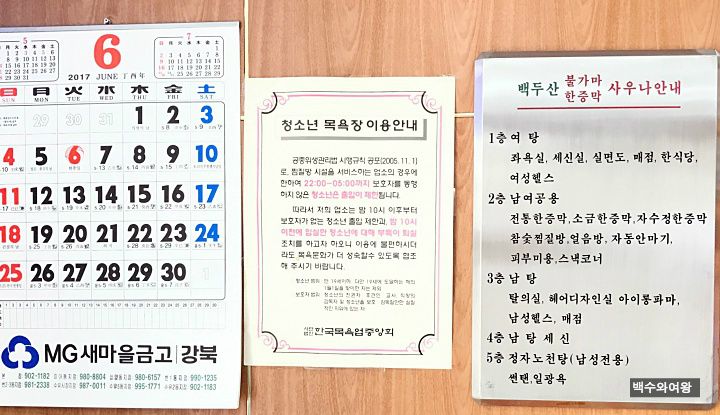 6
2017 JUNE 丁酉年
SUN MON TUE WED THU FRI SAT
日 月 火 水 木 金 土
29 30 31 1 2 3
4 5 6 7 8 9 10
11 12 13 14 15 16 17
18 19 20 21 22 23 24
25 26 27 28 29 30
MG새마을금고 | 강북
본 점 902-1182 980-8804 980-6157 990-1235
981-2338 987-0011 995-1771 902-1183
청소년 목욕장 이용안내
공중위생관리법 시행규칙 공포(2005.11.1)
로, 찜질방 시설을 서비스하는 업소의 경우에
한하여 22:00~05:00까지 보호자를 동행
하지 않은 청소년은 출입이 제한됩니다.
따라서 저희 업소는 밤 10시 이후부터
보호자가 없는 청소년 출입 제한과, 밤 10시
이전에 입실한 청소년에 대해 부득이 퇴실
조치를 하고자 하오니 이용에 불편하시더
라도 목욕문화가 더 성숙할수 있도록 협조
해 주시기 바랍니다.
청소년 범위 : 만 19세미만, 다만 19세에 도달하는 해의
1월1일을 맞이한 자는 제외
보호자 범위 : 청소년의 친권자,
사단법인 한국목욕업중앙회
백두산 불가마 한증막 사우나안내
1층 여 탕
좌욕실, 세신실, 실면도, 매점, 한식당,
여성헬스
2층 남여공용
전통한증막, 소금한증막, 자수정한증막
참숯찜질방, 얼음방, 자동안마기,
피부미용, 스넥코너
3층 남 탕
탈의실, 헤어디자인실 아이롱파마,
남성헬스, 매점
4층 남 탕 세 신
5층 정자노천탕(남성전용)
썬탠, 일광욕
백수와여왕